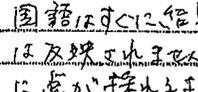 国語はすぐに紹
は反映されません
に点が採れるま